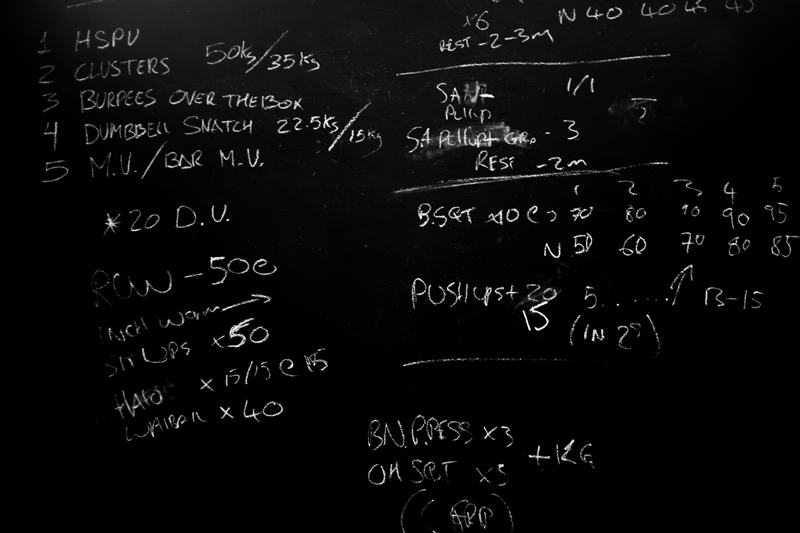 1 HSPU
2 CLUSTERS 50KG/35KG
3 BURPEES OVER THE BOX
4 DUMBBELL SNATCH 22.5KG/15KG
5 M.U./BAR M.U.
*20 D.U.
ROW - 500
INCH WORM →
SIT UPS x50
x 15/15 @ 15
WALLBALL x 40
x6
N 40 40 45 45
REST - 2-3m
1/1
- 3
REST - 2m
1 2 3 4 5
B.SQT x10 @ 70 80 90 90 95
N 50 60 70 80 85
PUSH UPS + 20 5....... B-15
15 (IN 25)
B.N.P.PRESS x3
OH SQT x3 +KG